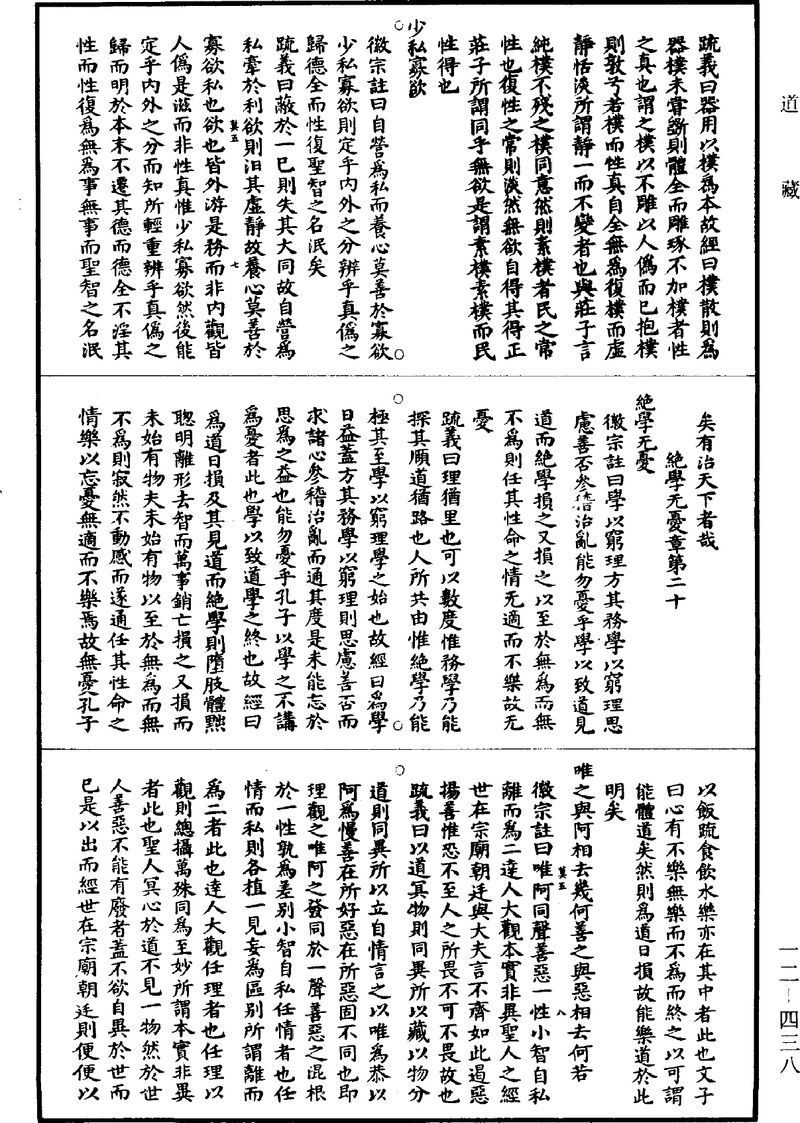 道藏
疏義曰器用以樸爲本故經曰樸散則爲
器樸未嘗斲則體全而雕琢不加樸者性
之真也謂之樸以不雕以人僞而已抱樸
則敦兮若樸而性真自全無爲復樸而虛
靜恬淡所謂靜一而不變者也與莊子言
純樸不殘之樸同意然則素樸者民之常
性也復性之常則淡然無欲自得其得正
莊子所謂同乎無欲是謂素樸素樸而民
性得也
少私寡欲
徽宗註曰自營爲私而養心莫善於寡欲
少私寡欲則定乎內外之分辨乎真僞之
歸德全而性復聖智之名泯矣
疏義曰蔽於一己則失其大同故自營爲
私牽於利欲則汩其虛靜故養心莫善於
莫五 七
寡欲私也欲也皆外游是務而非內觀皆
人僞是滋而非性真惟少私寡欲然後能
定乎內外之分而知所輕重辨乎真僞之
歸而明於本末不遷其德而德全不淫其
性而性復爲無爲事無事而聖智之名泯
矣有治天下者哉
絕學无憂章第二十
絕學无憂
徽宗註曰學以窮理方其務學以窮理思
慮善否參稽治亂能勿憂乎學以致道見
道而絕學損之又損之以至於無爲而無
不爲則任其性命之情无適而不樂故无
憂
疏義曰理猶里也可以數度惟務學乃能
探其賾道猶路也人所共由惟絕學乃能
極其至學以窮理學之始也故經曰爲學
日益蓋方其務學以窮理則思慮善否而
求諸心參稽治亂而通其度是未能忘於
思爲之益也能勿憂乎孔子以學之不講
爲憂者此也學以致道學之終也故經曰
爲道日損及其見道而絕學則墮肢體黜
聰明離形去智而萬事銷亡損之又損而
未始有物夫未始有物以至於無爲而無
不爲則寂然不動感而遂通任其性命之
情樂以忘憂無適而不樂焉故無憂孔子
以飯疏食飲水樂亦在其中者此也文子
曰心有不樂無樂而不爲而終之以可謂
能體道矣然則爲道日損故能樂道於此
明矣
唯之與阿相去幾何善之與惡相去何若
莫五 八
徽宗註曰唯阿同聲善惡一性小智自私
離而爲二達人大觀本實非異聖人之經
世在宗廟朝廷與大夫言不齊如此遏惡
揚善惟恐不至人之所畏不可不畏故也
疏義曰以道冥物則同異所以藏以物分
道則同異所以立自情言之以唯爲恭以
阿爲慢善在所好惡在所惡固不同也即
理觀之唯阿之發同於一聲善惡之混根
於一性孰爲差別小智自私任情者也任
情而私則各植一見妄爲區別所謂離而
爲二者此也達人大觀任理者也任理以
觀則總攝萬殊同爲至妙所謂本實非異
者此也聖人冥心於道不見一物然於世
人善惡不能有廢者蓋不欲自異於世而
已是以出而經世在宗廟朝廷則便便以
一二－四三八